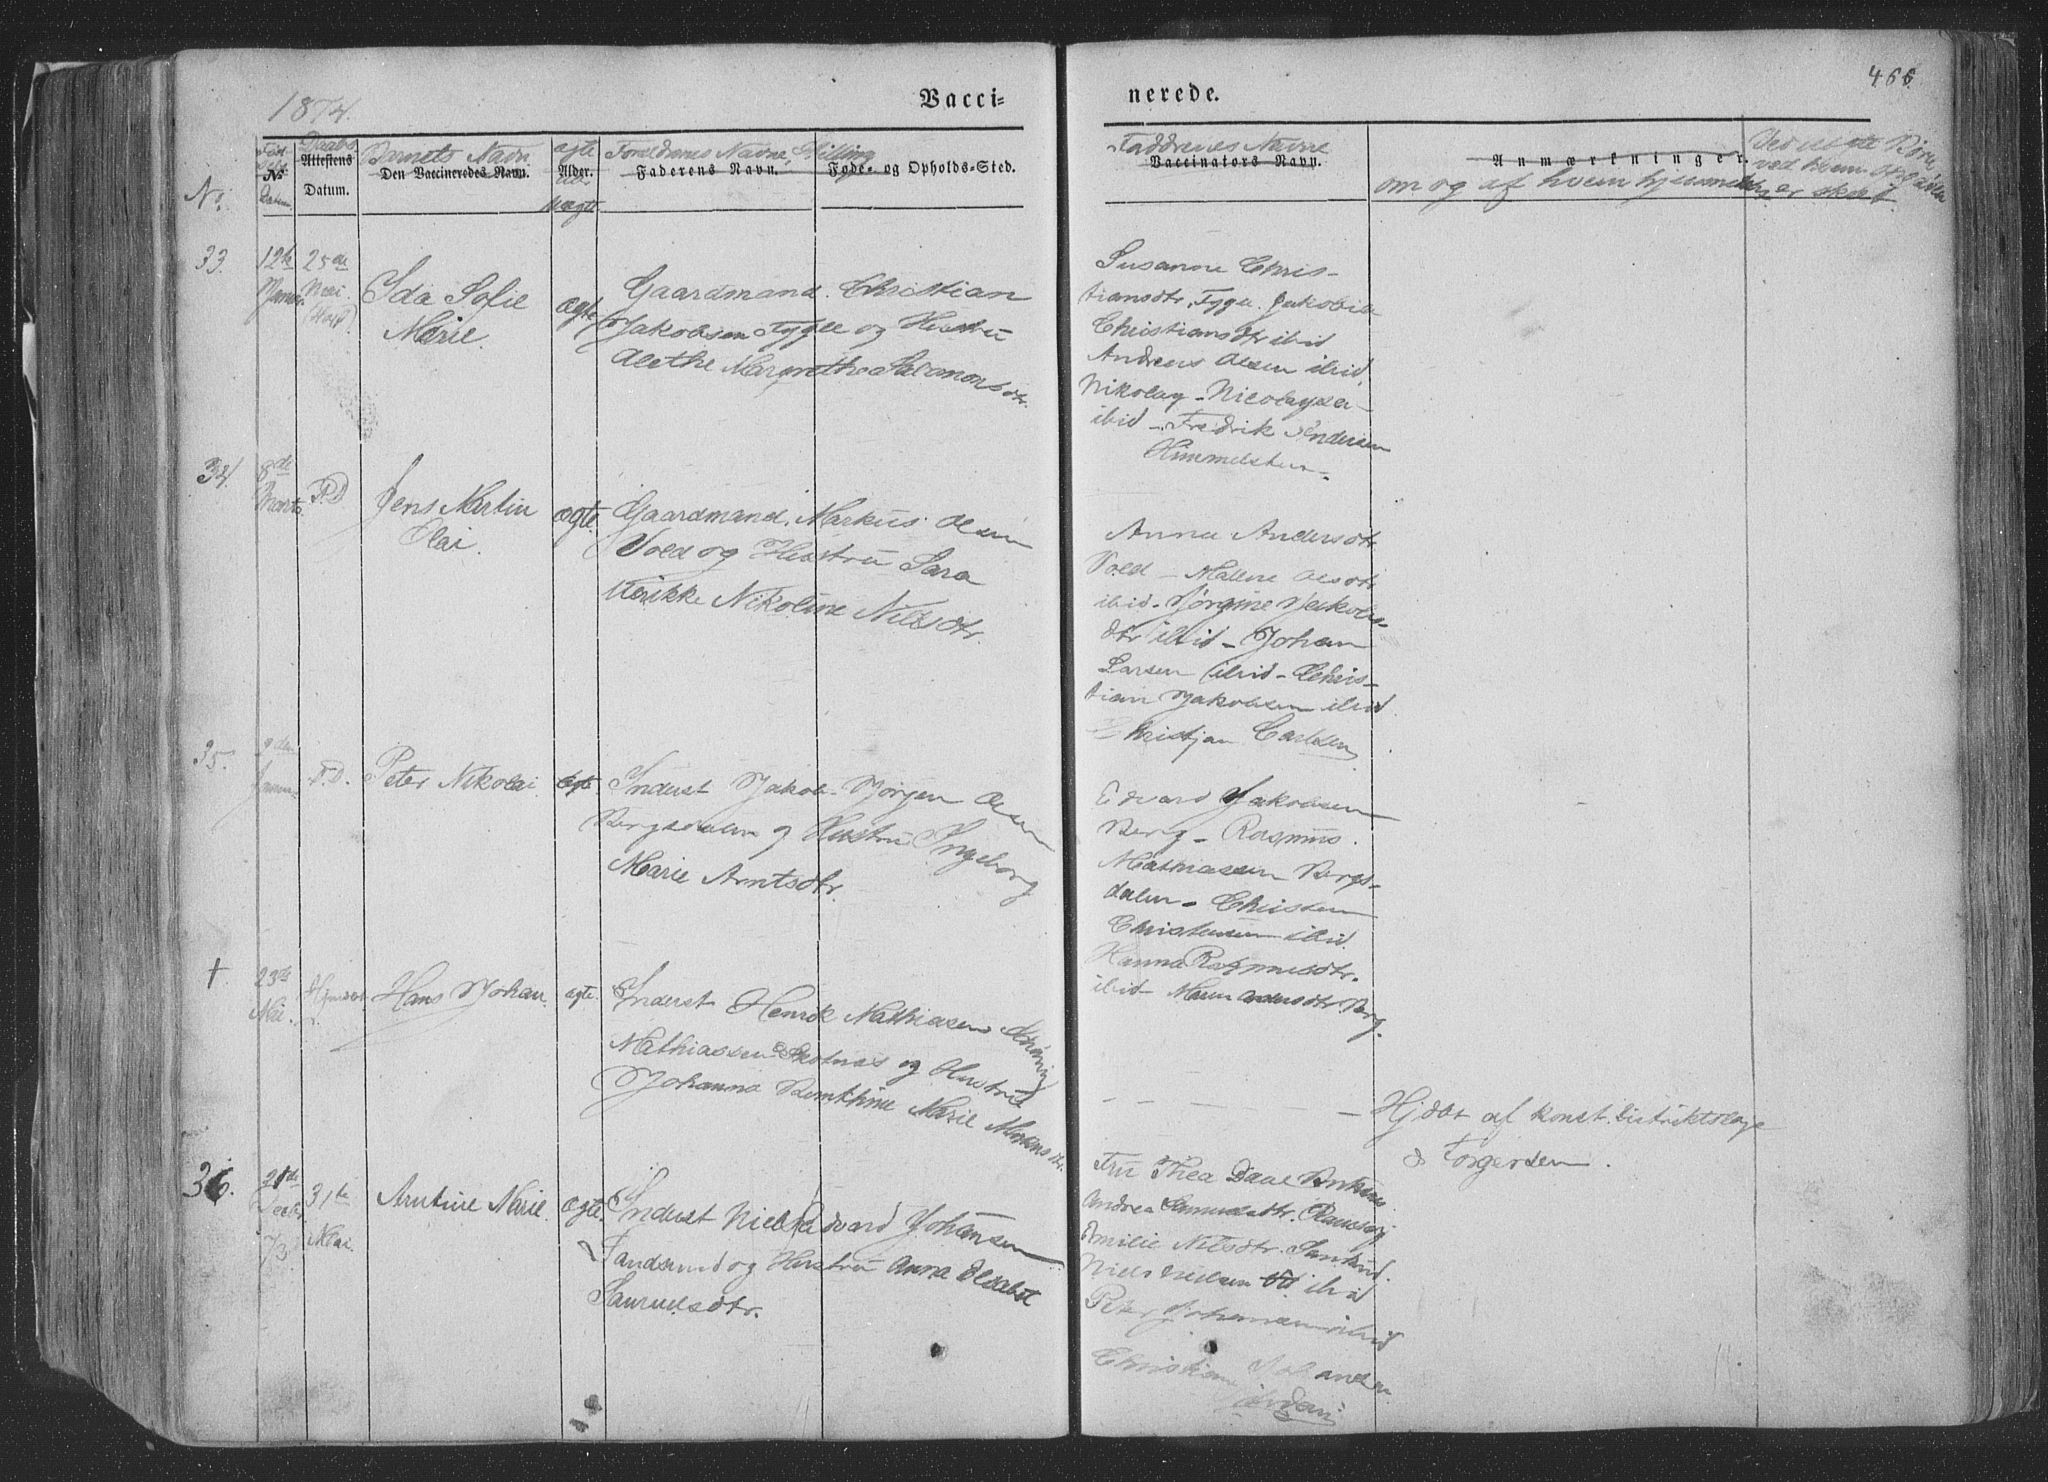 1874.
Vacci-
nerede.
466
No.
Daabs
Attestens
Datum.
Barnets Navn
Den Vaccineredes Navn.
ægte
Alder.
uægte
Forældrenes Navne, Stilling
Faderens Navn.
Føde- og Opholds-Sted.
Faddrenes Navne
Vaccinators Navn.
Anmærkninger.
om og af hvem hjemmedaab er skeet
33.
12te
25de
Mai
Ida Sofie
Marie.
ægte
Gaardmand. Christian
Jakobsen Fygle og Hustru
Alethe Margrethe Salamonsdtr.
Susanne Chris-
tiansdtr. Fygle. Jakobine
Christiansdtr ibid
Andreas Olsen ibid
Nikolay Nicolaysen
ibid - Fredrik Andersen
Himmelsten
34.
8de
Marts
F.D
Jens Martin
Olai.
ægte.
Gaardmand. Markus Olsen
Vold og Hustru Sara
Rikke Nikoline Nilsdtr.
Anna Andersdtr
Vold - Malene Olsdtr
ibid - Jørgine Jakobs-
dtr ibid - Johan
Larsen ibid - Chris-
tian Jakobsen ibid
Christjan Carlsen
35.
9den
Januar
F.D.
Peter Nikolai
ægte.
Inderst Jakob Jørgen Olsen
Bergsdalen og Hustru Ingeborg
Marie Arntsdtr.
Edvard Jakobsen
Berg - Rasmus
Mathiassen Bergs-
dalen - Christen
Christensen ibid.
Hanna Rasmusdtr.
ibid - Maren Andersdtr Berg.
+
23de
Mai.
Hjmdøbt
Hans Johan
ægte.
Inderst Henrik Mathiasen
Mathiassen Skotnæs og Hustru
Johanna Benthine Marie
Hjdøbt af konst. Distriktslæge
Torgersen.
36.
21de
Decbr
73
31te
Mai.
Arntine Marie.
ægte.
Inderst Niels Edvard Johansen
Sandsund og Hustru Anna Elisabet
Samuelsdtr.
Fru Thea Daae
Andrea Samuelsdtr. Ramsvig
Amilie Nilsdtr. Sandsund.
Niels Nielsen ibid
Peter Johansen ibid
Christian Johansen